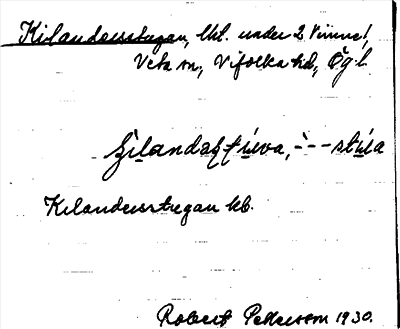 Kilandersstugan, lht. under 2 Vinne!,
Veta sn, Vifolka hd, Ögl.
stúa
Kilandersstugan kb.
Robert Pettersson 1930.